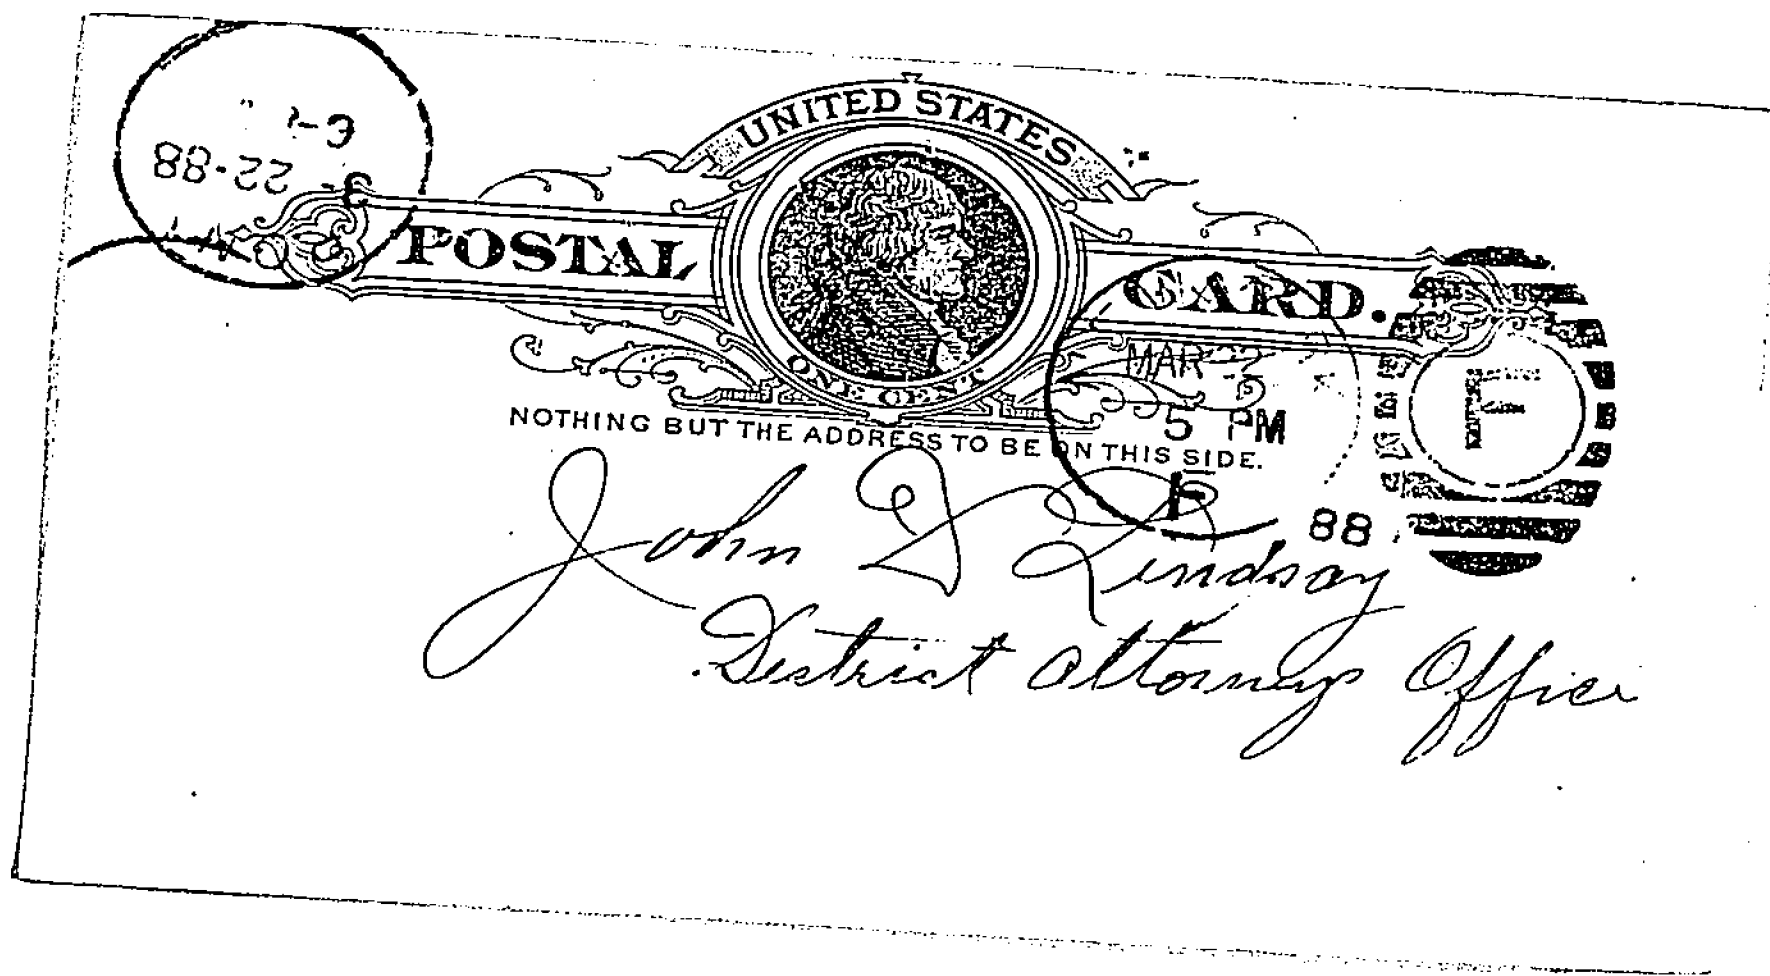 UNITED STATES
POSTAL CARD.
ONE CENT
NOTHING BUT THE ADDRESS TO BE ON THIS SIDE.
3-22-88
MAR 22
5 PM
F
88
John D Lindsay
District Attorneys Office